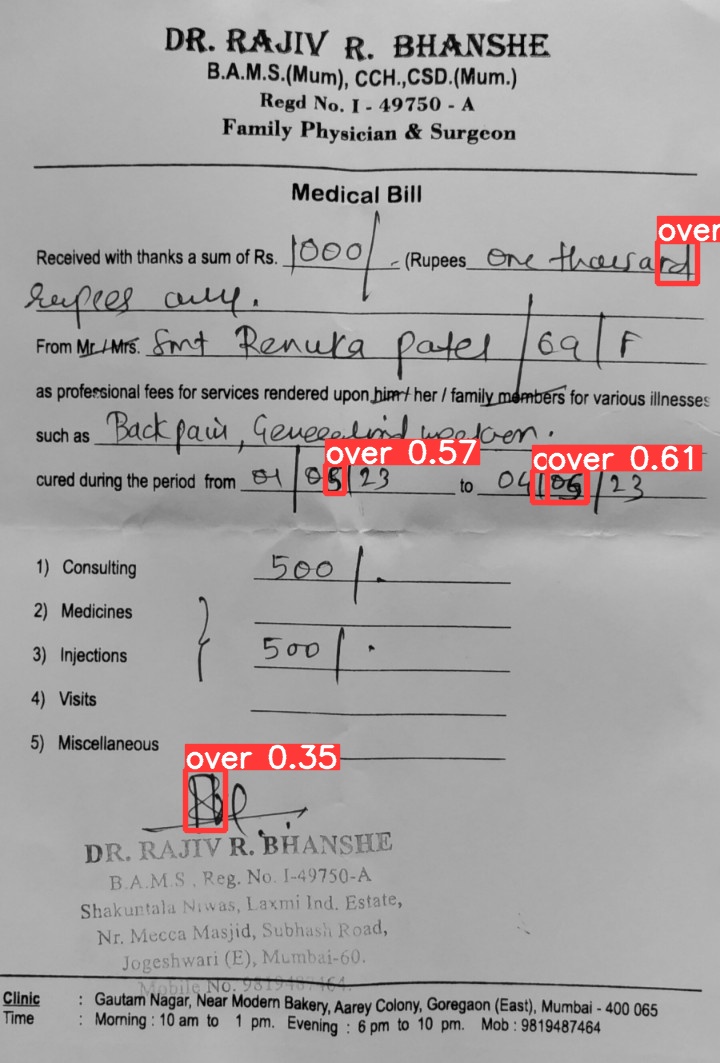 DR. RAJIV R. BHANSHE
B.A.M.S.(Mum), CCH.,CSD.(Mum.)
Regd No. I - 49750 - A
Family Physician & Surgeon
Medical Bill
over
Received with thanks a sum of Rs. 1000/- (Rupees One thousand
Rupees only.
From Mr./Mrs. Smt Renuka Patel / 69 / F
as professional fees for services rendered upon him / her / family members for various illnesses
such as Back pain,
over 0.57 cover 0.61
cured during the period from 01/05/23 to 04/06/23
1) Consulting 500/.
2) Medicines
3) Injections 500/.
4) Visits
5) Miscellaneous
over 0.35
DR. RAJIV R. BHANSHE
B.A.M.S , Reg. No. I-49750-A
Shakuntala Niwas, Laxmi Ind. Estate,
Nr. Mecca Masjid, Subhash Road,
Jogeshwari (E), Mumbai-60.
Mobile No. 9819487464.
Clinic : Gautam Nagar, Near Modern Bakery, Aarey Colony, Goregaon (East), Mumbai - 400 065
Time : Morning : 10 am to 1 pm. Evening : 6 pm to 10 pm. Mob : 9819487464